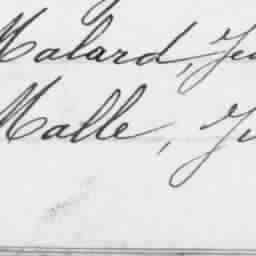 Malard, Je
Malle, Ju